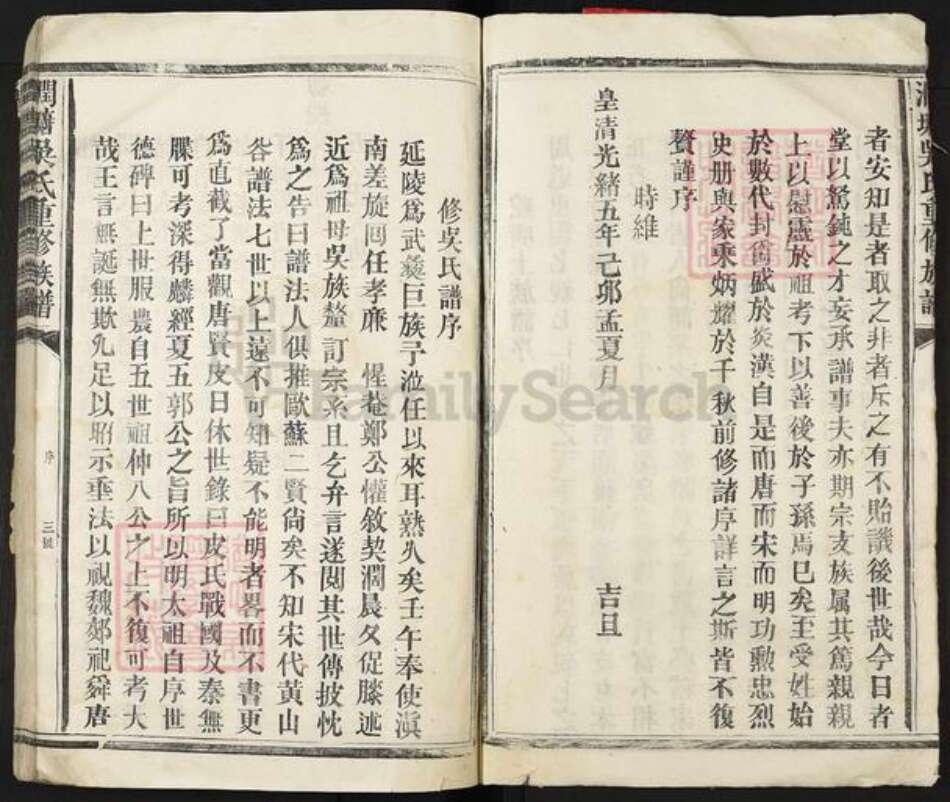 者安知是者取之非者斥之有不貽譏後世哉今日者
堂以駑鈍之才妄承譜事夫亦期宗支族属其篤親親
上以慰靈於祖考下以善後於子孫焉已矣至受姓始
於數代封爵盛於炎漢自是而唐而宋而明功勳忠烈
史册與家乘炳耀於千秋前修諸序詳言之斯皆不復
贅謹序
時維
皇清光緒五年己卯孟夏月 吉旦
吳氏重修族譜
修吳氏譜序
延陵爲武彝巨族予涖任以來耳熟久矣壬午奉使滇
南差旋回任孝亷 惺菴鄭公懽敘契濶晨夕促膝述
近爲祖母吳族釐訂宗系且乞弁言遂閲其世傳披忱
爲之告曰譜法人俱推歐蘇二賢尙矣不知宋代黄山
谷譜法七世以上遠不可知疑不能明者畧而不書更
爲直截了當觀唐賢皮日休世錄曰皮氏戰國及秦無
牒可考深得麟經夏五郭公之旨所以明太祖自序世
德碑曰上世服農自五世祖仲八公之上不復可考大
哉王言無誕無欺允足以昭示垂法以視魏郊祀舜唐
吳氏重修族譜
序
三號
FamilySearch